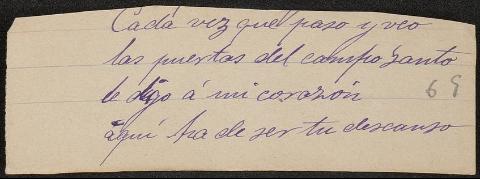 Cada vez que paso y veo
las puertas del campo santo
le digo á mi corazón
aquí ha de ser tu descanso
69